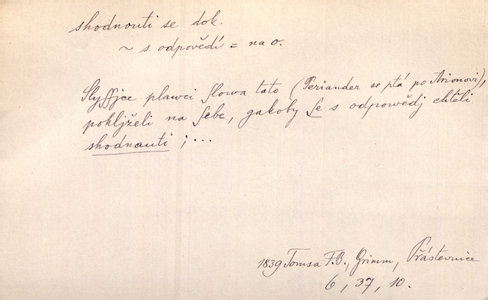 shodnouti se dok.
~ s odpovědí = na o.
Slyssjce plawci slowa tato (Periander se ptá po Arionovi),
pohljželi na sebe, gakoby se s odpowědj chtěli
shodnauti ; ...
1839 Tomsa F.B., Grimm, Přástevnice
6, 37, 10.